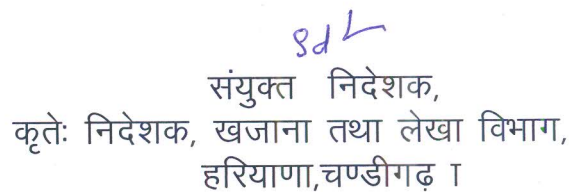 Sd/-
संयुक्त निदेशक,
कृतेः निदेशक, खजाना तथा लेखा विभाग,
हरियाणा,चण्डीगढ़ ।